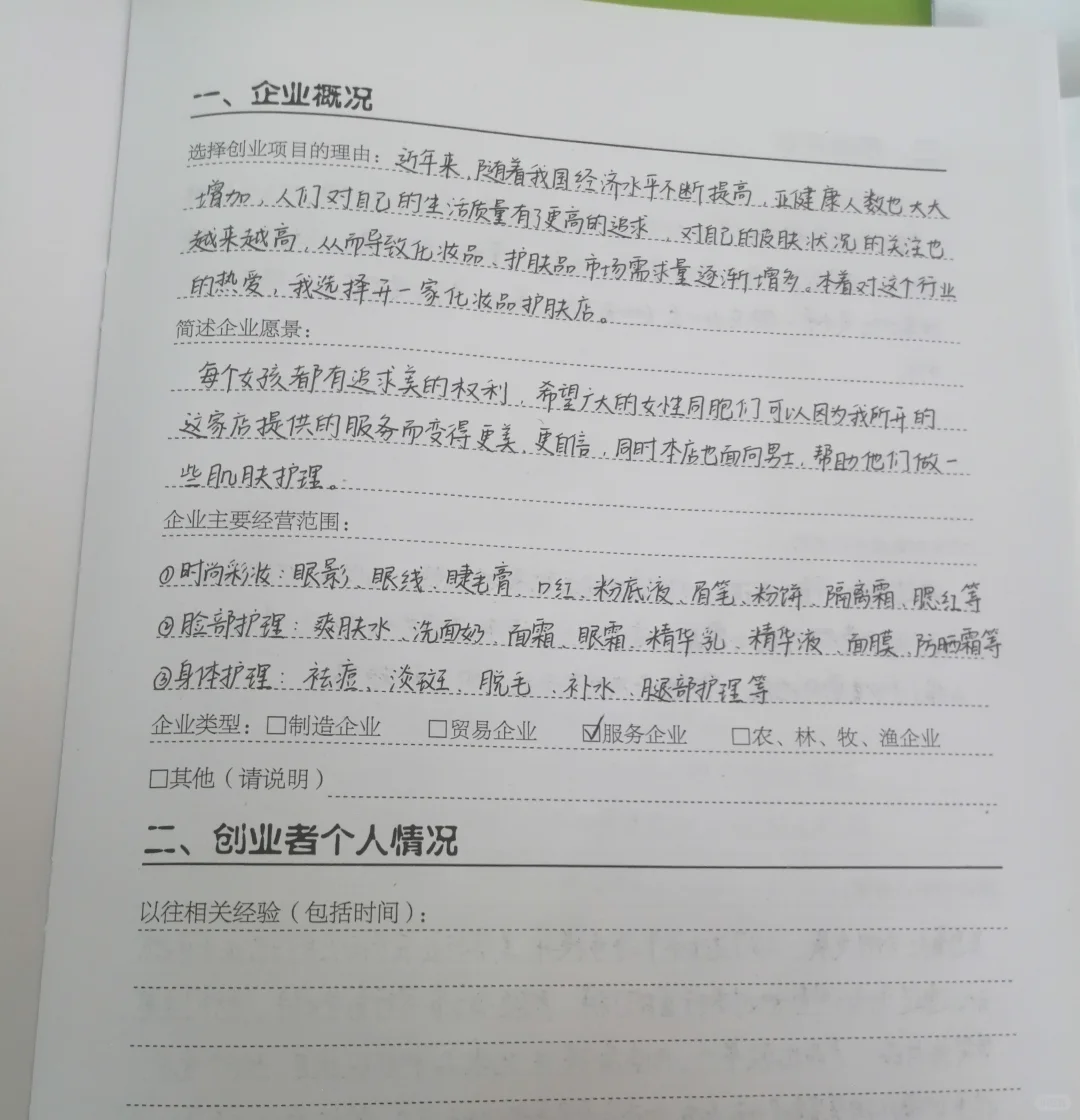 一、企业概况
选择创业项目的理由：近年来，随着我国经济水平不断提高，亚健康人数也大大
增加，人们对自己的生活质量有了更高的追求，对自己的皮肤状况的关注也
越来越高，从而导致化妆品、护肤品市场需求量逐渐增多。本着对这个行业
的热爱，我选择开一家化妆品护肤店。
简述企业愿景：
每个女孩都有追求美的权利，希望广大的女性同胞们可以因为我所开的
这家店提供的服务而变得更美、更自信，同时本店也面向男士，帮助他们做一
些肌肤护理。
企业主要经营范围：
①时尚彩妆：眼影、眼线、睫毛膏、口红、粉底液、眉笔、粉饼、隔离霜、腮红等
②脸部护理：爽肤水、洗面奶、面霜、眼霜、精华乳、精华液、面膜、防晒霜等
③身体护理：祛痘、淡斑、脱毛、补水、腿部护理等
企业类型：□制造企业 □贸易企业 ☑服务企业 □农、林、牧、渔企业
□其他（请说明）
二、创业者个人情况
以往相关经验（包括时间）：